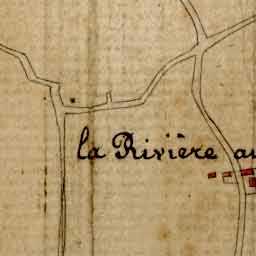 la Rivière au